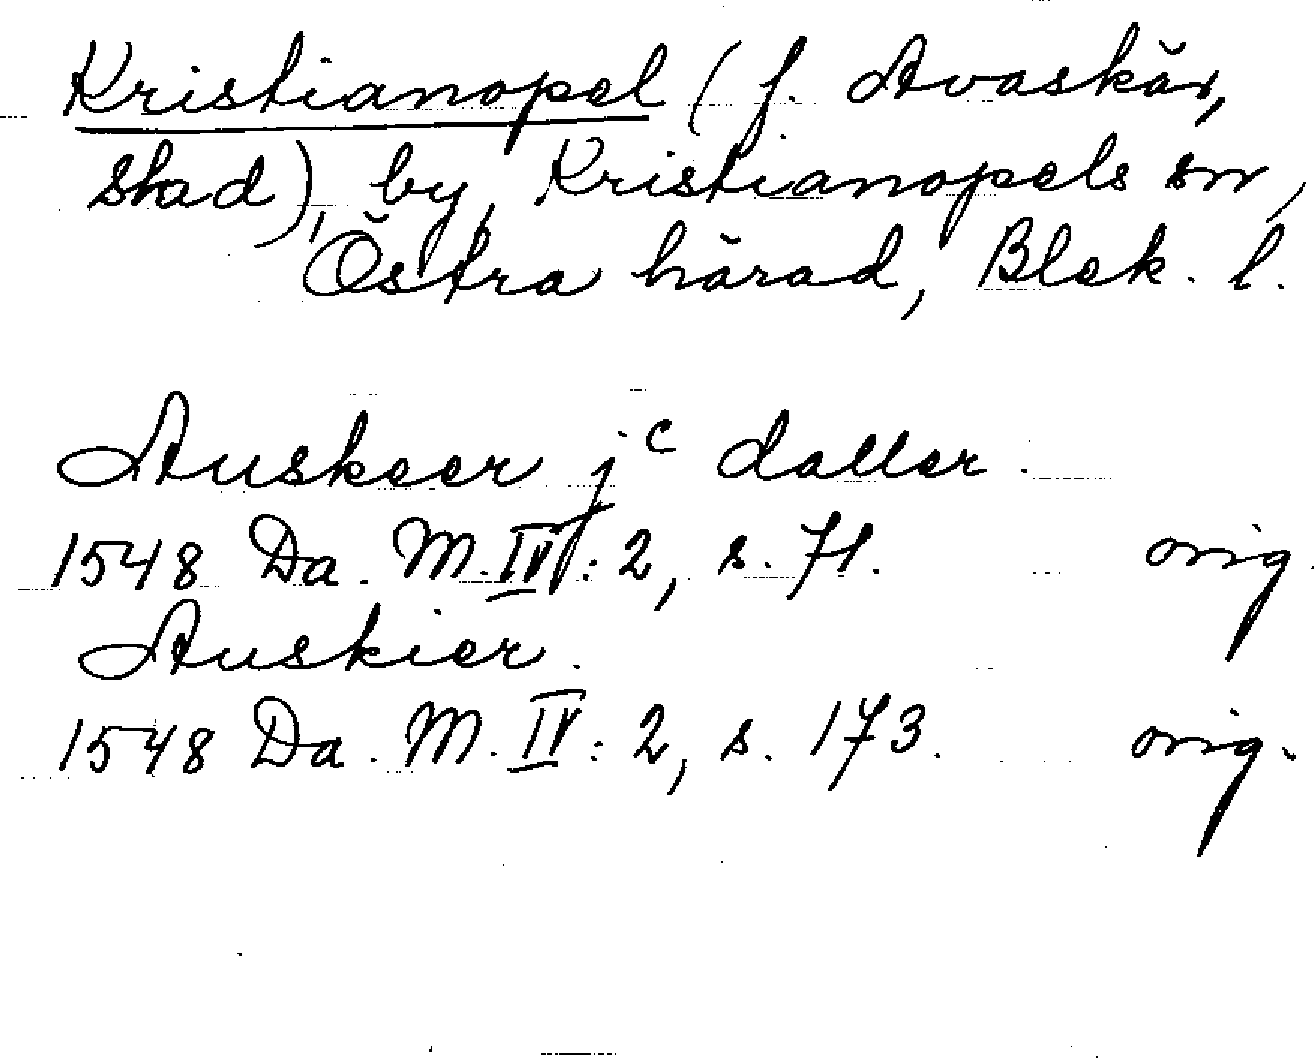 Kristianopel (f. Avaskär,
stad), by, Kristianopels sn,
Östra härad, Blek. l.
Auskeer jc daller.
1548 Da. M. IV: 2, s. 71. orig.
Auskier.
1548 Da. M. IV: 2, s. 173. orig.